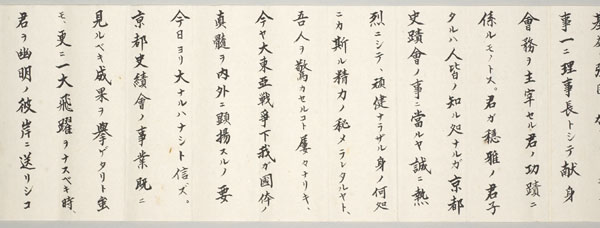 事一ニ理事長トシテ献身
會務ヲ主宰セル君ノ功蹟ニ
係ルモノトス。君ガ穏雅ノ君子
タルハ人皆ノ知ル処ナルガ京都
史蹟會ノ事ニ當ルヤ誠ニ熱
烈ニシテ、頑健ナラザル身ノ何処
ニカ斯ル精力ノ秘メラレタルヤト、
吾人ヲ驚カセルコト屢々ナリキ、
今ヤ大東亜戦争下我ガ國体ノ
真髄ヲ内外ニ顕揚スルノ要
今日ヨリ大ナルハナシト信ズ。
京都史績會ノ事業既ニ
見ルベキ成果ヲ擧ゲタリト雖
モ、更ニ一大飛躍ヲナスベキ時、
君ヲ幽明ノ彼岸ニ送リシコ